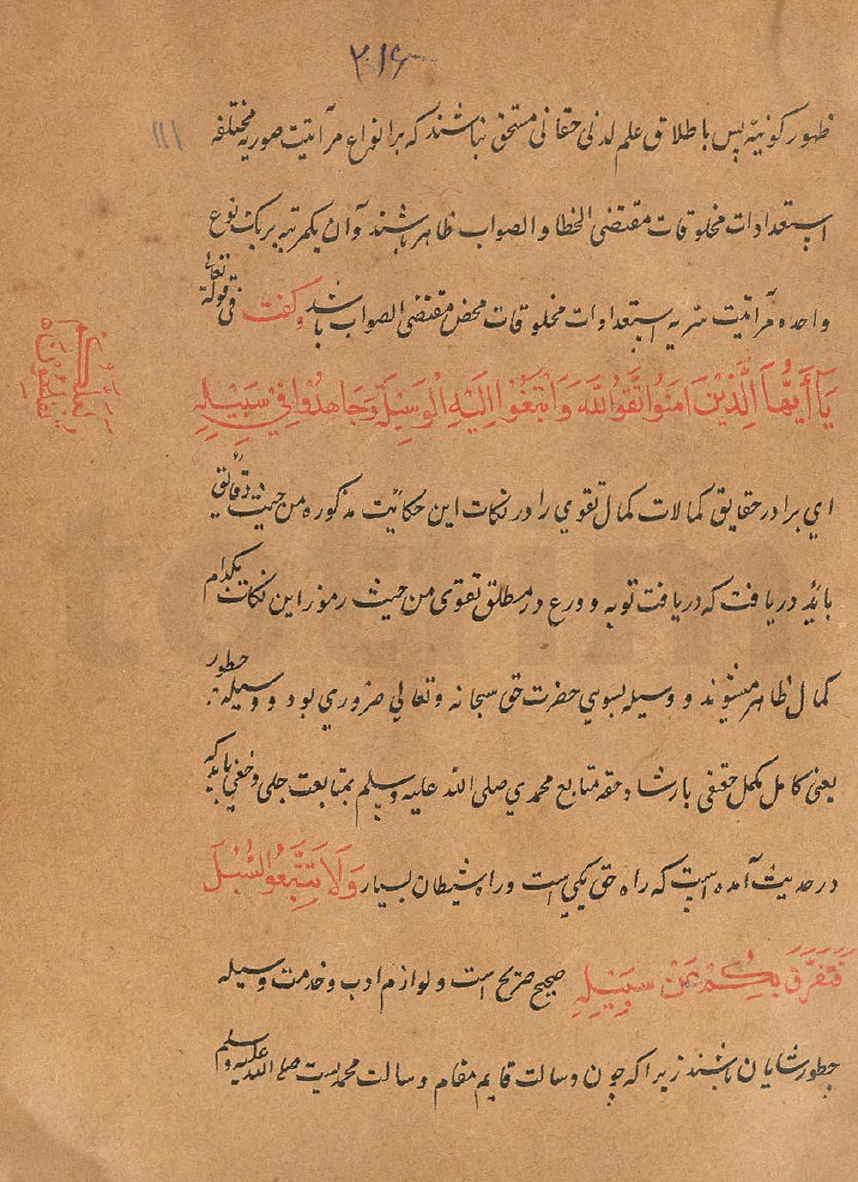 ۳۱۶
ااا
ظهور کونیه پس باطلاق علم لدنی حقانی مستحق نباشند که بر انواع مرآتیت صوریه مختلفه
استعدادات مخلوقات مقتضی الخطا والصواب ظاهر باشند و آن یکمرتبه بریک نوع
واحده مرآتیت سریه استعدادات مخلوقات محض مقتضی الصواب باشد و کفت فی قوله تعالی
يَا أَيُّهَا الَّذِيْنَ اٰمَنُوا اتَّقُوا اللهَ وَابْتَغُوا اِلَيْهِ الْوَسِيْلَةَ وَجَاهِدُوْا فِيْ سَبِيْلِهِ
لَعَلَّكُمْ تُفْلِحُوْنَ
ای برادر حقایق کمالات کمال تقوی را در نکات این حکائیت مذکوره من حیث دقایق
بائد دریافت که دریافت توبه و ورع در مطلق تقوی من حیث رموز این نکات بکدام
کمال ظاهر میشوند و وسیله بسوی حضرت حق سبحانه وتعالی ضروری بود و وسیله چطور
یعنی کامل مکمل حقی بارشاد حقه متابع محمدی صلی الله علیه وسلم بمتابعت جلی وخفی باید که
در حدیث آمده است که راه حق یکی است وراه شیطان بسیار وَلَا تَتَّبِعُوا السُّبُلَ
فَتَفَرَّقَ بِكُمْ عَنْ سَبِيْلِهِ صحیح صریح است و لوازم ادب و خدمت وسیله
چطور شایان باشند زیرا که چون وسالت قایم مقام وسالت محمدیست صلی الله علیه وسلم